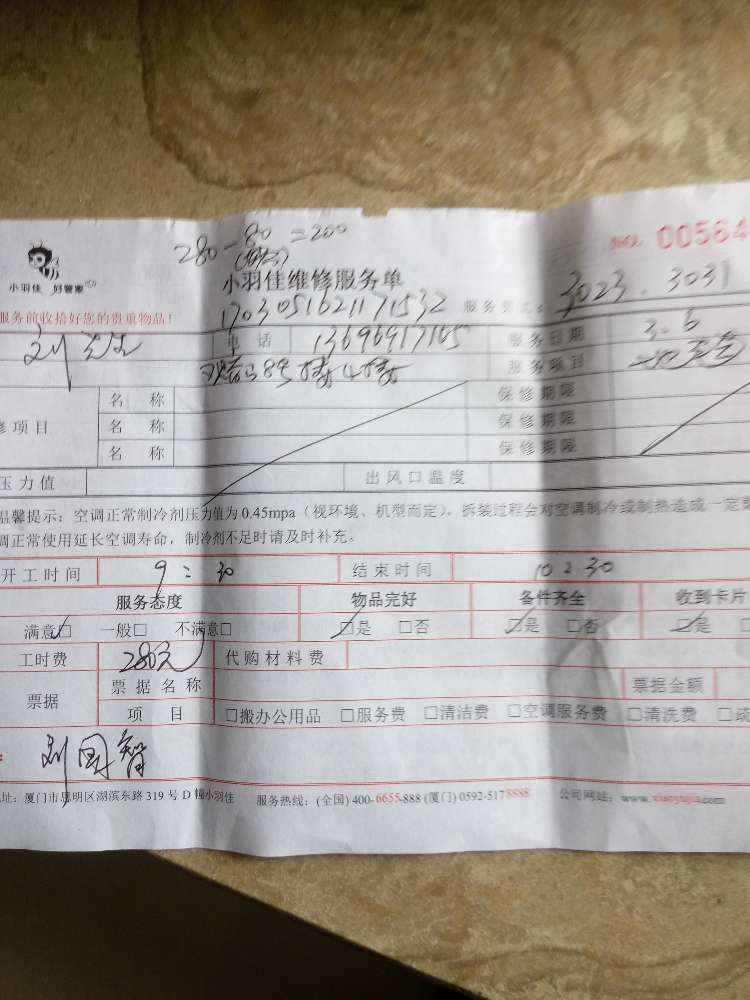 280-80=200
NO. 00564
小羽佳 好管家
小羽佳维修服务单
服务前收拾好您的贵重物品!
1703051621171532 服务员工: 3023.3031
刘先生 电话 13696917165 服务日期 3.6
8号楼4楼 服务项目
修项目 名称 保修期限
名称 保修期限
名称 保修期限
压力值 出风口温度
温馨提示：空调正常制冷剂压力值为0.45mpa（视环境、机型而定），拆装过程会对空调制冷或制热造成一定
调正常使用延长空调寿命，制冷剂不足时请及时补充。
开工时间 9:30 结束时间 10:30
服务态度 物品完好 备件齐全 收到卡片
满意□ 一般□ 不满意□ □是 □否 □是 □否 □是
工时费 280元 代购材料费
票据 票据名称 票据金额
项目 □搬办公用品 □服务费 □清洁费 □空调服务费 □清洗费 □疏
刘国智
址：厦门市思明区湖滨东路319号D幢小羽佳 服务热线：(全国) 400-6655-888 (厦门) 0592-5178888 公司网站：www.xiaoyujia.com